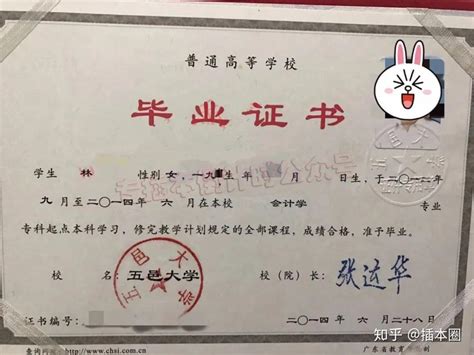 普通高等学校
毕业证书
学生 林 性别 女,一九 年 月 日生,于二〇一二年
九月至二〇一四年 六 月在本校 会计学 专业
专科起点本科学习,修完教学计划规定的全部课程,成绩合格,准予毕业。
校 名:五邑大学 校(院)长:张运华
五邑大学
证书编号: 二〇一四年 六 月二十八日
查询网 http://www.chsi.com.cn 广东省教育 制
知乎 @插本圈